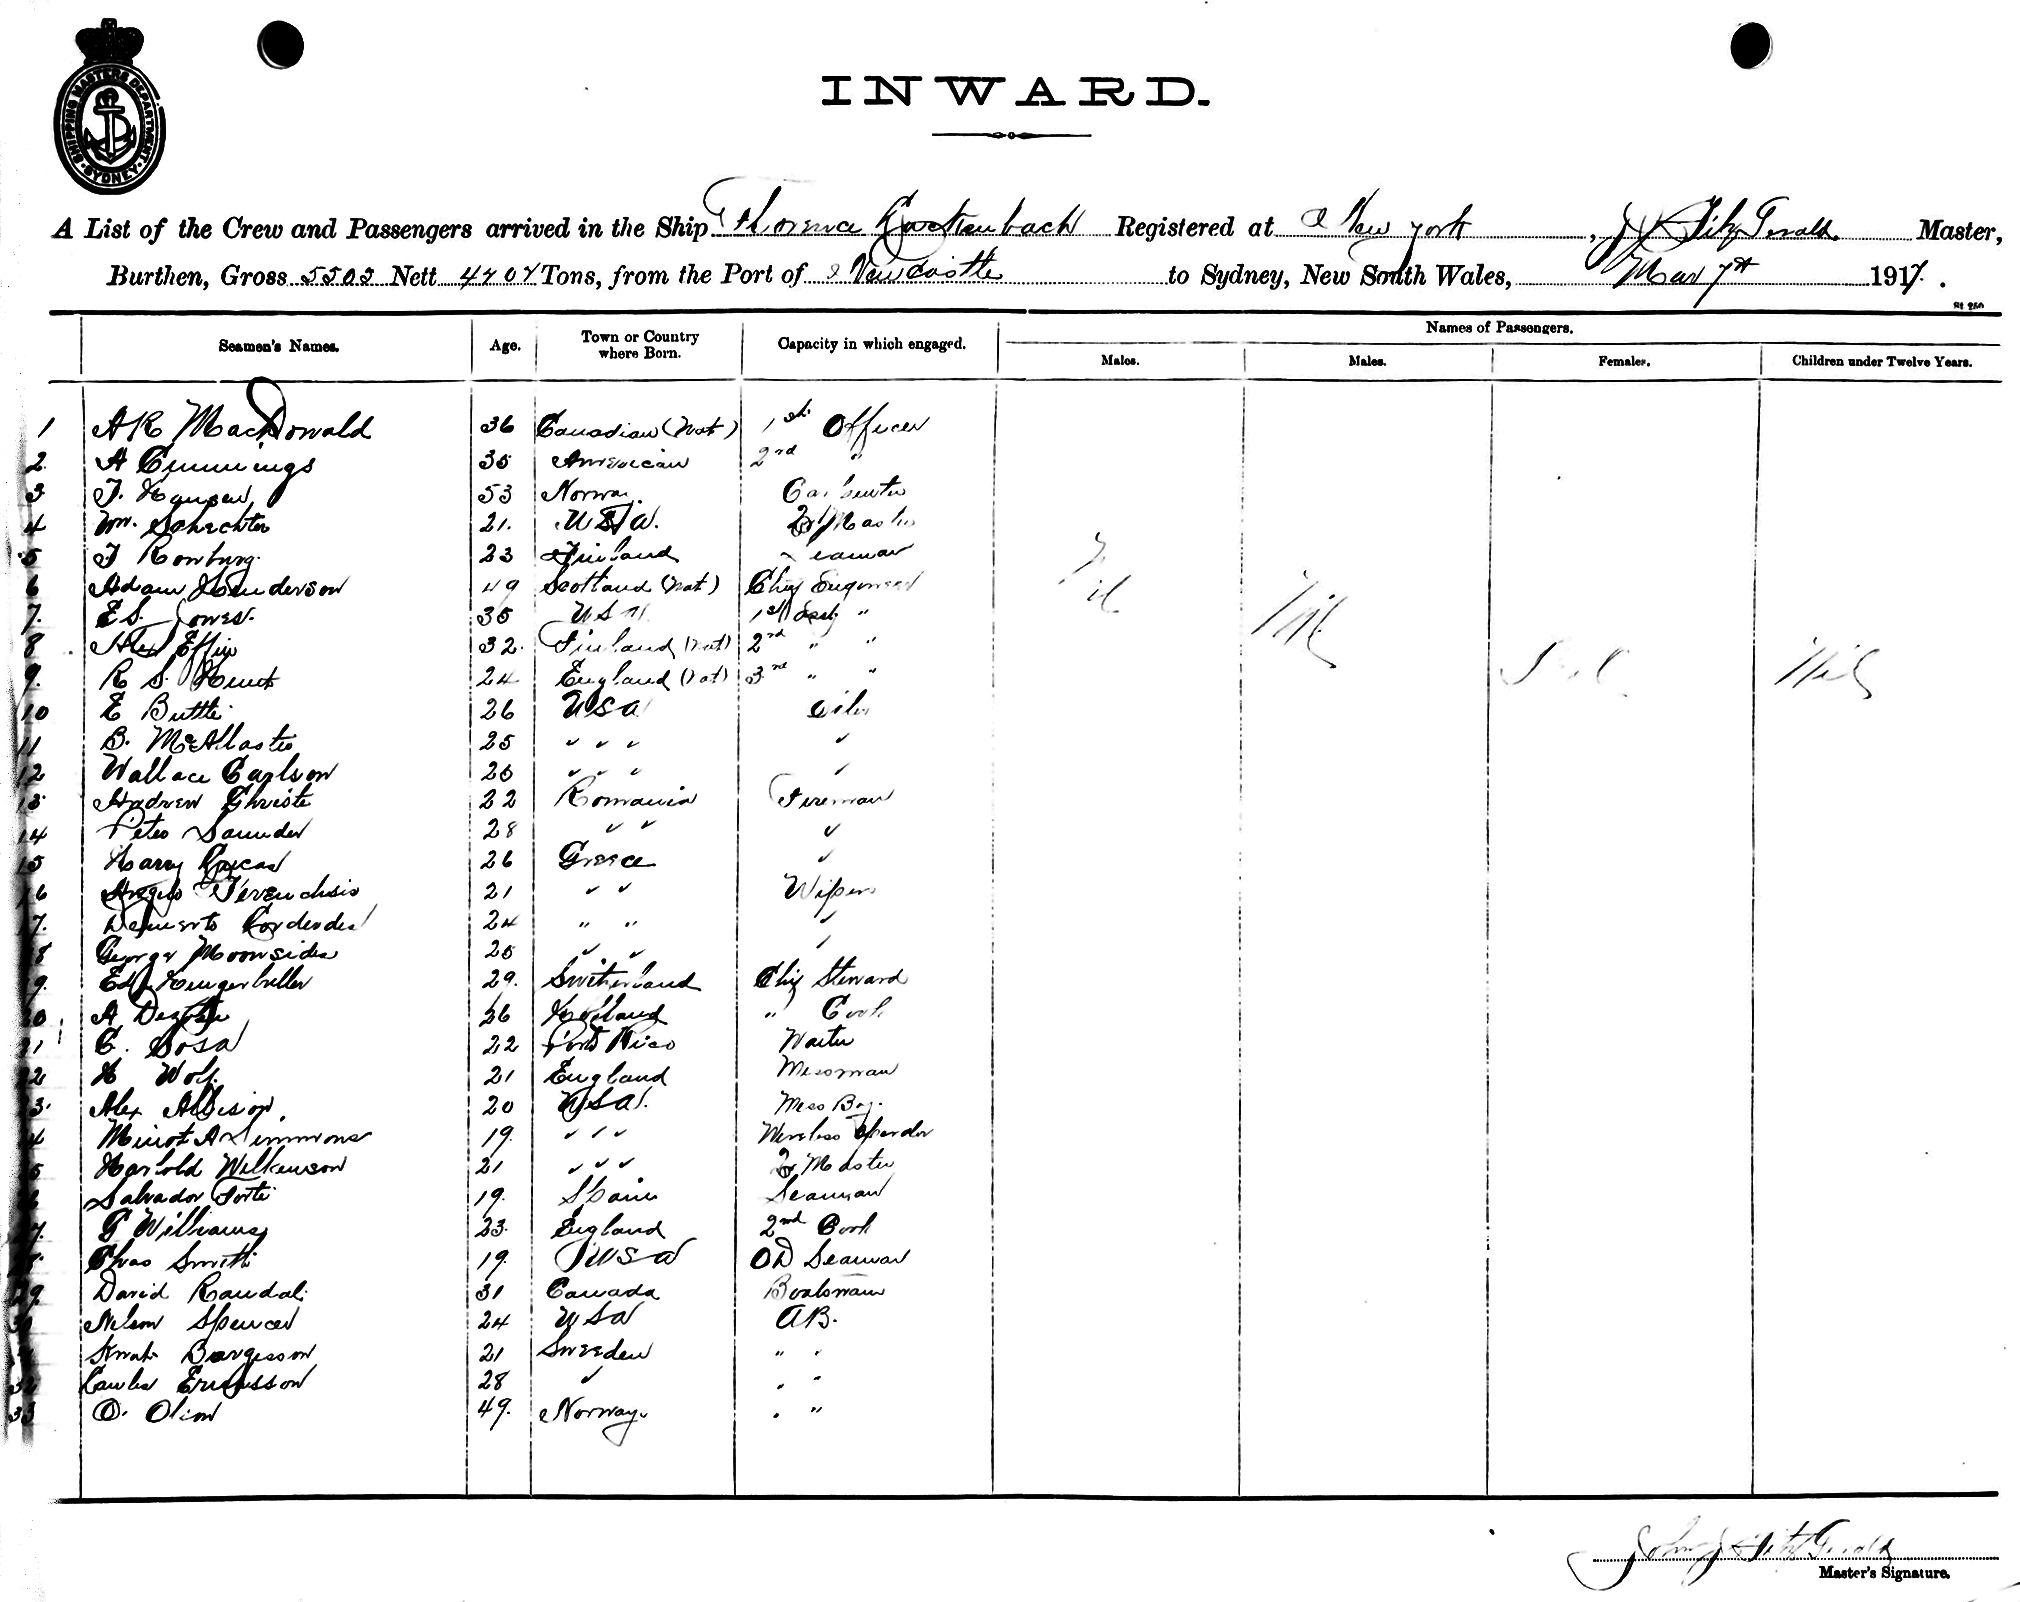 SHIPPING MASTERS DEPARTMENT
SYDNEY
INWARD.
A List of the Crew and Passengers arrived in the Ship Florence Registered at New York, J J FitzGerald Master,
Burthen, Gross Nett Tons, from the Port of Newcastle to Sydney, New South Wales, Mar 7th 1917.
Names of Passengers.
Seamen's Names. Age. Town or Country where Born. Capacity in which engaged. Males. Males. Females. Children under Twelve Years.
1 A R MacDonald 36 Canadian (Nat) 1st Officer
2. A Cummings 35 American 2nd "
3. J. Hansen 53 Norway. Carpenter
4 Wm. Schechter 21. USA. Qr Master
5 23 Finland Seaman
6 Adam Henderson 49 Scotland (Nat) Chief Engineer
7. E S. Jones. 35 USA 1st Asst "
8 Alex 32. Finland (Nat) 2nd " "
9. R S. Hunt 24 England (Nat) 3rd " "
10 E Buttle 26 USA Oiler
11 B. McAllaster 25 " " " "
12 Wallace Carlson 25 " " " "
13 Andrew Christe 22 Romania Fireman
14 Peter Saunder 28 " " "
15 Harry 26 Greece "
16 Angelo 21 " " Wiper
17. 24 " " "
18 George Moonsides 25 " " "
19. Ed 29. Switzerland Chief Steward
20 A 36 Holland " Cook
21 C. Sosa 22 Porto Rico Waiter
22 H Wolf. 21 England Messman
23. Alex Allison. 20 USA. Mess Boy.
24 Minot A Simmons 19. " " " Wireless Operator
25 Harold Wilkinson 21 " " " Qr Master
26 Salvador Forte 19. Spain Seaman
27. G Williams 23. England 2nd Cook
28 Chas Smith 19. USA OD Seaman
29. David Randal. 31 Canada Boatswain
30 Nelson Spencer 24 USA AB.
31 Borgesson 21 Sweden " "
32 Ericksson 28 " " "
33 O. Olson 49. Norway. " "
Nil Nil Nil Nil
John J FitzGerald
Master's Signature.